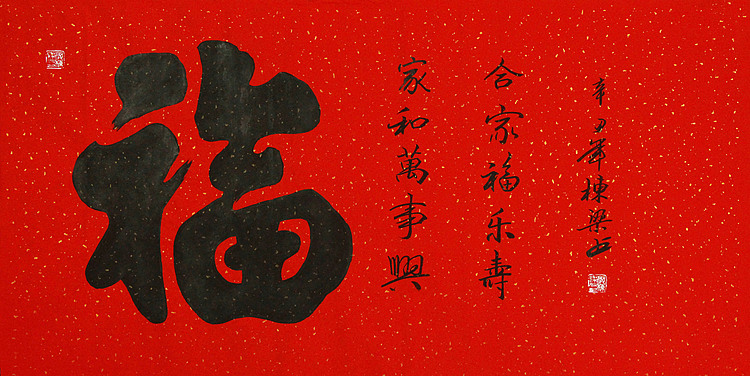 福
家和萬事興
合家福乐寿
辛丑年棟梁书